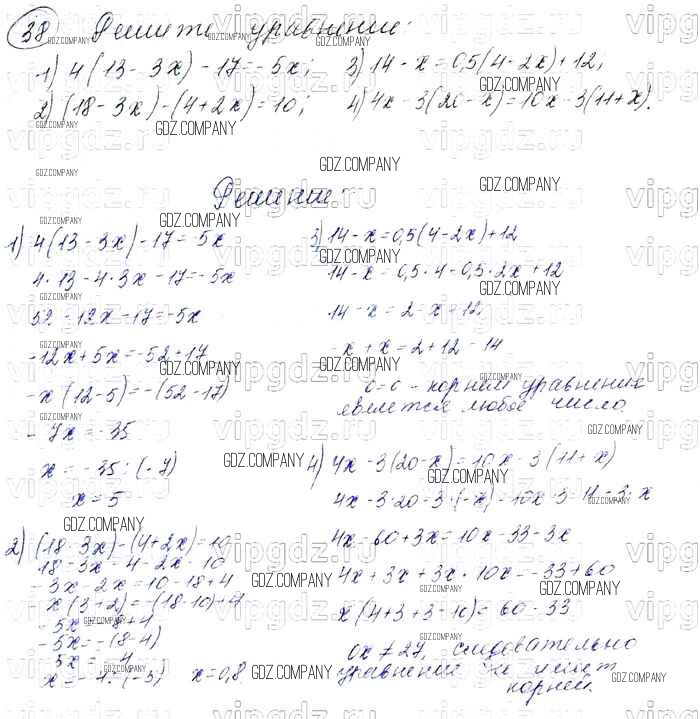 38 Решите уравнение:
1) 4(13 - 3x) - 17 = -5x; 3) 14 - x = 0,5(4 - 2x) + 12;
2) (18 - 3x) - (4 + 2x) = 10; 4) 4x - 3(20 - x) = 10x - 3(11 + x).
Решение:
1) 4(13 - 3x) - 17 = -5x
4·13 - 4·3x - 17 = -5x
52 - 12x - 17 = -5x
-12x + 5x = -52 + 17
-x(12 - 5) = -(52 - 17)
-7x = -35
x = -35 : (-7)
x = 5
2) (18 - 3x) - (4 + 2x) = 10
18 - 3x - 4 - 2x = 10
-3x - 2x = 10 - 18 + 4
-x(3 + 2) = -(18 - 10) + 4
-5x = -8 + 4
-5x = -(8 - 4)
-5x = -4
x = -4 : (-5) x = 0,8
3) 14 - x = 0,5(4 - 2x) + 12
14 - x = 0,5·4 - 0,5·2x + 12
14 - x = 2 - x + 12
-x + x = 2 + 12 - 14
0 = 0 - корнем уравнение
является любое число.
4) 4x - 3(20 - x) = 10x - 3(11 + x)
4x - 3·20 - 3·(-x) = 10x - 3·11 - 3·x
4x - 60 + 3x = 10x - 33 - 3x
4x + 3x + 3x - 10x = -33 + 60
x(4 + 3 + 3 - 10) = 60 - 33
0x ≠ 27, следовательно
уравнение не имеет
корней.
vipgdz.ru
GDZ.COMPANY